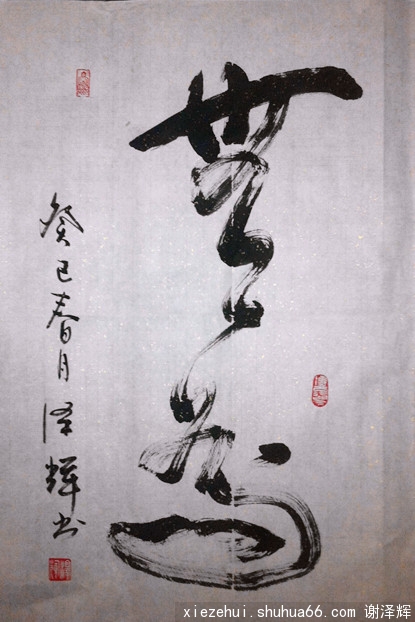 無為
癸巳春月泽辉书
xiezehui.shuhua66.com 谢泽辉